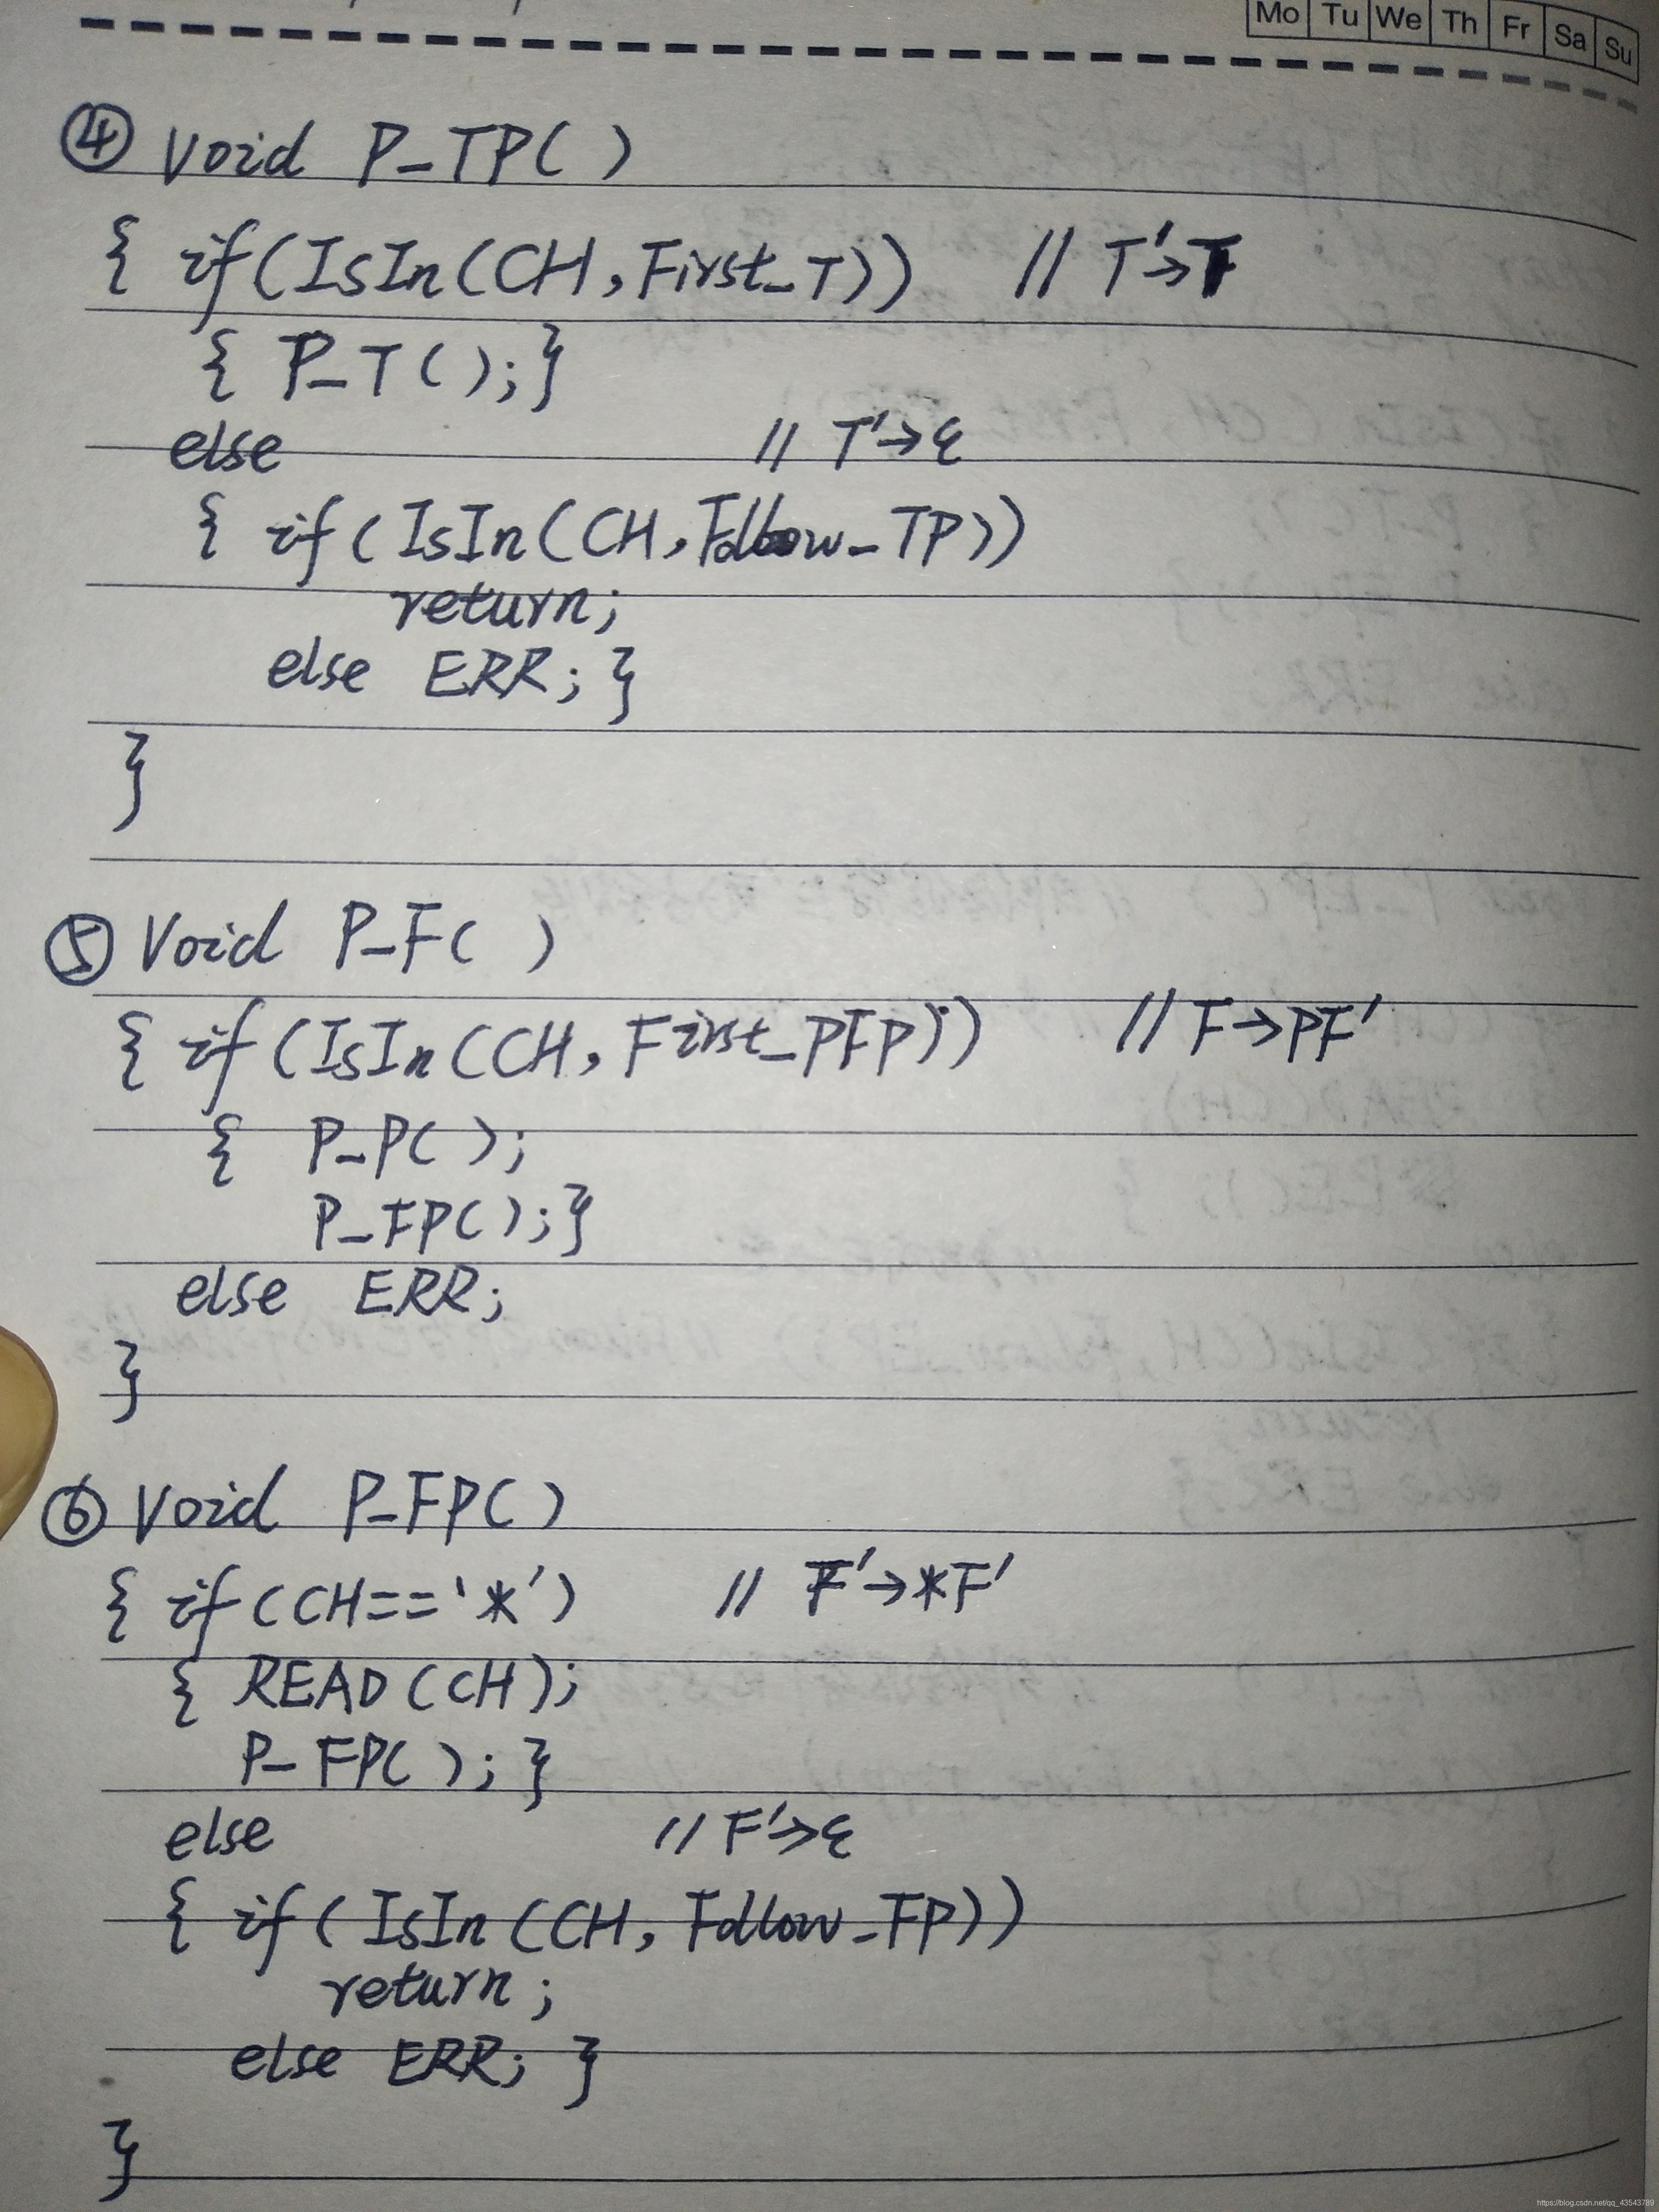 Mo Tu We Th Fr Sa Su
④ Void P_TP( )
{ if(IsIn(CH,First_T)) // T'→T
{ P_T( );}
else // T'→ε
{ if(IsIn(CH,Follow_TP))
return;
else ERR; }
}
⑤ Void P_F( )
{ if(IsIn(CH,First_PFP)) // F→PF'
{ P_P( );
P_FP( );}
else ERR;
}
⑥ Void P_FP( )
{ if(CH=='*') // F'→*F'
{ READ(CH);
P_FP( );}
else // F'→ε
{ if(IsIn(CH,Follow_FP))
return;
else ERR; }
}
https://blog.csdn.net/qq_43543789